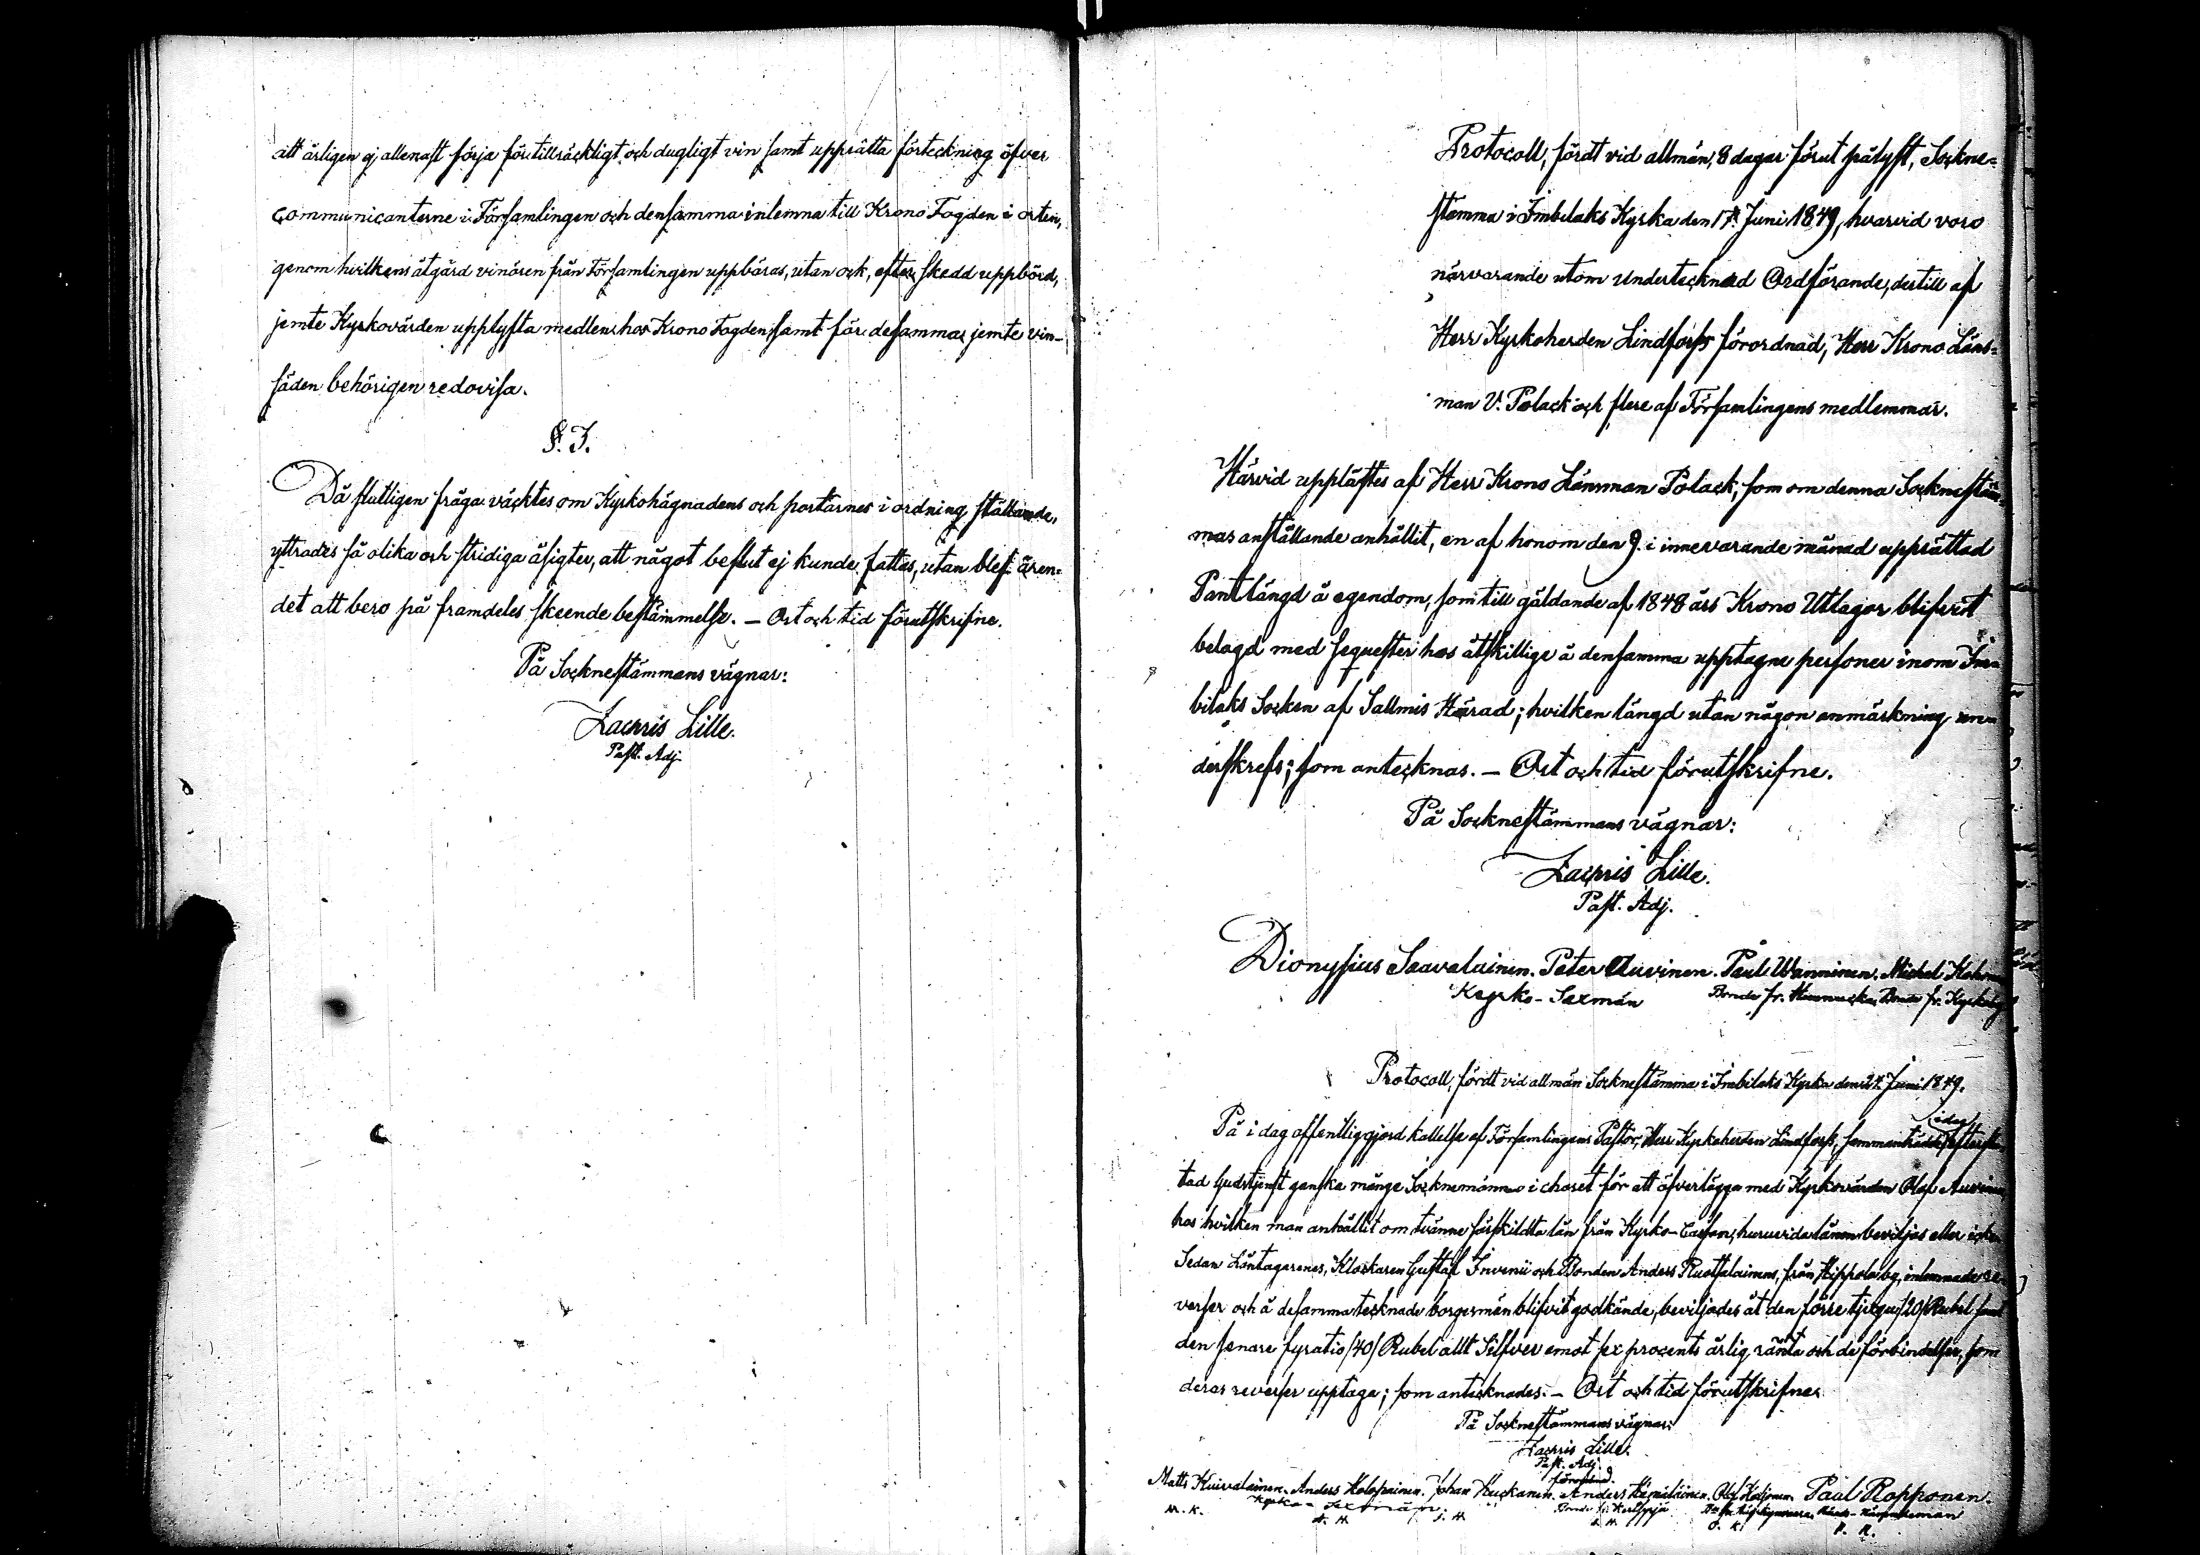 att årligen ej allenast sörja för tillräckligt och dugligt vin samt upprätta förteckning öfver
Communicanterne i Församlingen och densamma inlemna till Krono Fogden i orten,
genom hvilkens åtgärd vinören från Församlingen uppbäras, utan ock, efter skedd uppbörd,
jemte Kyrkovärden upplyfta medlen hos Krono Fogden samt för desamma jemte vin-
säden behörigen redovisa.
§. 3.
Då slutligen fråga väcktes om Kyrkohägnadens och portarnes i ordning ställande,
yttrades så olika och stridiga åsigter, att något beslut ej kunde fattas, utan blef ären-
det att bero på framdeles skeende bestämmelse. – Ort och tid förutskrifne.
På Socknestämmans vägnar:
Zachris Lille.
Past. Adj.
Protocoll, fördt vid allmän, 8 dagar förut pålyst, Sockne-
stämma i Imbilaks Kyrka den 17 Juni 1849, hvarvid voro
närvarande utom undertecknad Ordförande, dertill af
Herr Kyrkoherden Lindforss förordnad, Herr Krono Läns-
man V. Polack och flere af Församlingens medlemmar.
Härvid upplästes af Herr Krono Länsman Polack, som om denna Socknestäm-
mas anställande anhållit, en af honom den 9. i innevarande månad upprättad
Pantlängd å egendom, som till gäldande af 1848 års Krono Utlagor blifvit
belagd med sequester hos åtskillige å densamma upptagne personer inom Im-
bilaks Socken af Sallmis Härad; hvilken längd utan någon anmärkning un-
derskrefs; som antecknas. – Ort och tid förutskrifne.
På Socknestämmans vägnar:
Zachris Lille.
Past. Adj.
Dionysius Saavalainen. Peter Auvinen. Paul Wanninen. Michel
Kyrko-Sexmän Bonde fr. Bonde fr. Kyrkoby
Protocoll, fördt vid allmän Socknestämma i Imbilaks Kyrka den 24. Juni 1849.
idag
På i dag offentliggjord kallelse af Församlingens Pastor, Herr Kyrkoherden Lindforss, sammanträdde efter
tad Gudstjenst ganska många Socknemänner i choret för att öfverlägga med Kyrkovärden Olof Auvinen,
hos hvilken man anhållit om tvänne särskildta lån från Kyrko-Cassan, huruvida lånen beviljas eller icke.
Sedan Låntagarenes, Klockaren Gustaf Invenii och Bonden Anders Ruotsalainens, från Kippola by, inlemnade re-
verser och å desamma tecknade borgesmän blifvit godkände, beviljades åt den förre tjugu /20/ Rubel samt
den senare fyratio /40/ Rubel allt Silfver emot sex procents årlig ränta och de förbindelser, som
deras reverser upptaga; som antecknades. – Ort och tid förutskrifne.
På Socknestämmans vägnar:
Zachris Lille.
Past. Adj.
förordnad.
Matts Kuivalainen. Anders Holopainen. Johan Huckanen. Anders Hämäläinen. Olof Paul Ropponen.
M. K. Kyrko-Sexmän. A. H. J. H. Bonde A. H. O. K. P. R.